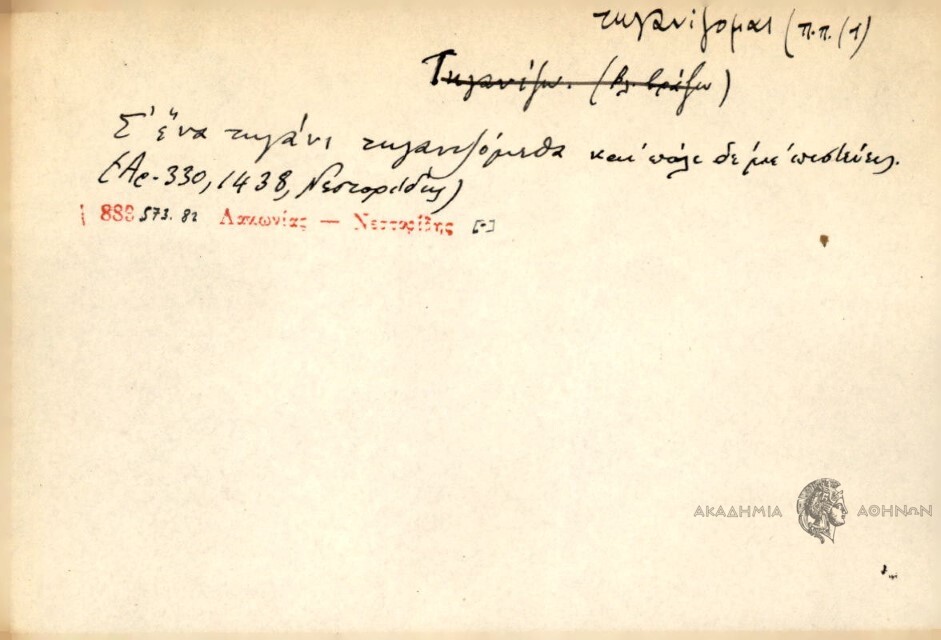 τηγανίζομαι (π.π. /1)
Τηγανίζω. (βλ. βράζω)
Σ' ἕνα τηγάνι τηγανιζόμεθα και πάλι δε με πιστεύεις.
(Ἀρ. 330, 1438, Νεστορίδης)
888 573. 82 Λακωνίας — Νεστορίδης [-]
ΑΚΑΔΗΜΙΑ ΑΘΗΝΩΝ